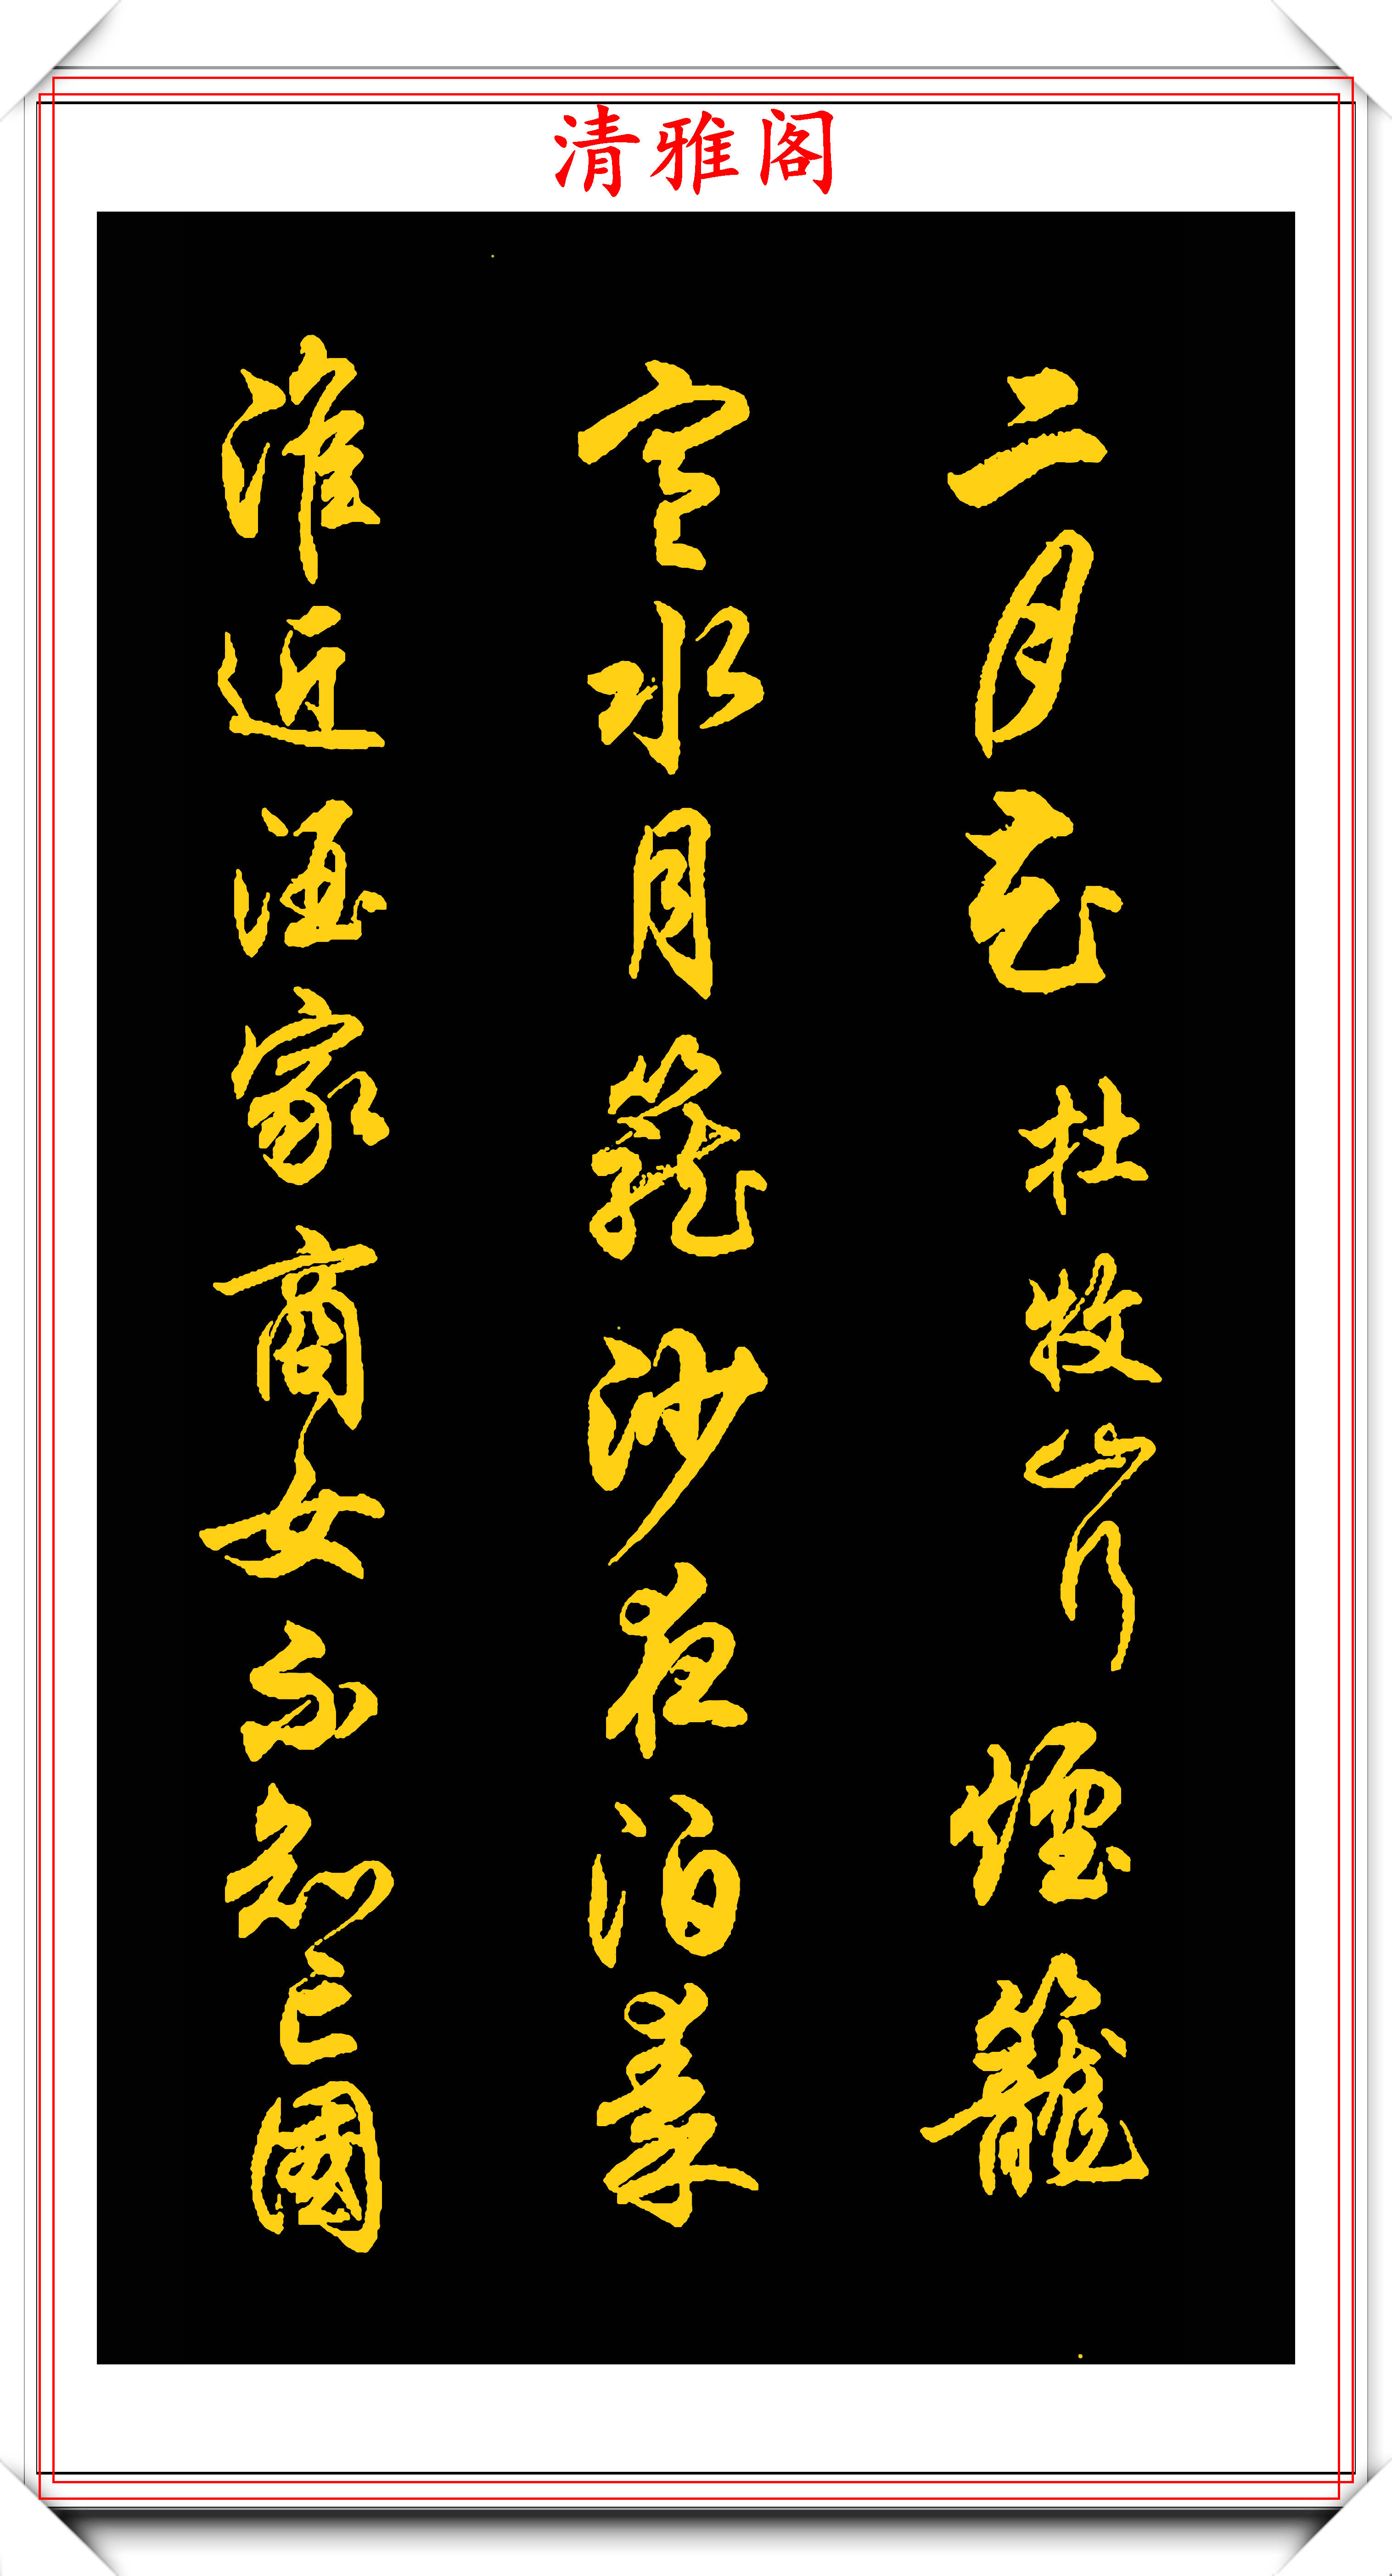 清雅阁
二月花 杜牧山行 煙籠
寒水月籠沙夜泊秦
淮近酒家商女不知亡國